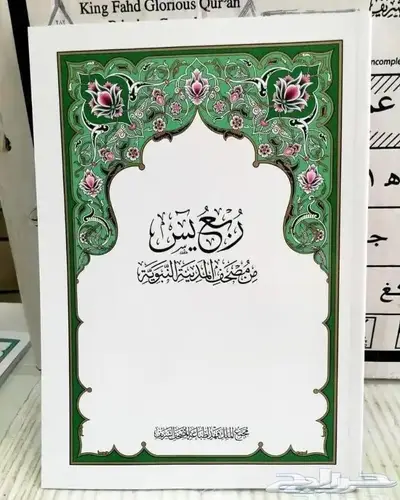 King Fahd Glorious Qur'an
ربع يس
من مصحف المدينة النبوية
مجمع الملك فهد لطباعة المصحف الشريف
حراج